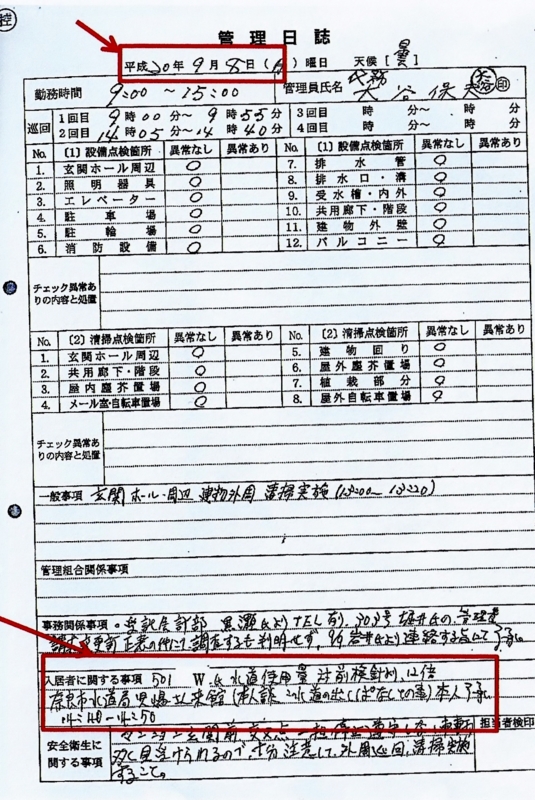 控
管理日誌
平成20年9月8日(月)曜日 天候[曇]
勤務時間 9:00 ~ 15:00 管理員氏名 代務 大谷 印
巡回 1回目 9時00分~9時55分 3回目 時 分~ 時 分
2回目 14時05分~14時40分 4回目 時 分~ 時 分
No. (1)設備点検箇所 異常なし 異常あり No. (1)設備点検箇所 異常なし 異常あり
1. 玄関ホール周辺 ○ 7. 排水管 ○
2. 照明器具 ○ 8. 排水口・溝 ○
3. エレベーター ○ 9. 受水槽・内外 ○
4. 駐車場 ○ 10. 共用廊下・階段 ○
5. 駐輪場 ○ 11. 建物外壁 ○
6. 消防設備 ○ 12. バルコニー ○
チェック異常ありの内容と処置
No. (2)清掃点検箇所 異常なし 異常あり No. (2)清掃点検箇所 異常なし 異常あり
1. 玄関ホール周辺 ○ 5. 建物回り ○
2. 共用廊下・階段 ○ 6. 屋外塵芥置場 ○
3. 屋内塵芥置場 ○ 7. 植栽部分 ○
4. メール室・自転車置場 ○ 8. 屋外自転車置場 ○
チェック異常ありの内容と処置
一般事項 玄関ホール・周辺 建物外周 清掃実施 (13:00~13:20)
管理組合関係事項
事務関係事項 ・委託会計部 黒瀬氏よりTEL有、303号 堀井氏の管理費
調査するも判明せず、
入居者に関する事項 501 W.氏 水道使用量 前検針 12倍
奈良市水道局 来館 (本人談 水道の出しっぱなしとの事) 本人了承
14:40-14:50
担当者検印
安全衛生に関する事項 マンション玄関前 交差点 一担停止
見受けられるので、十分注意して、外周巡回、清掃実施
すること。